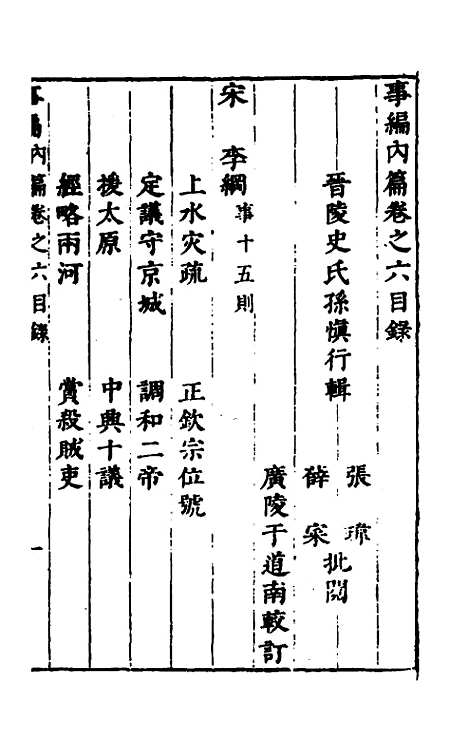 事編內篇卷之六目錄
晉陵史氏孫愼行輯
張
薛寀
批閱
廣陵于道南較訂
宋 李綱事十五則
上水灾疏 正欽宗位號
定議守京城 調和二帝
援太原 中興十議
經略兩河 賞殺賊吏
編內篇卷之六目錄 一